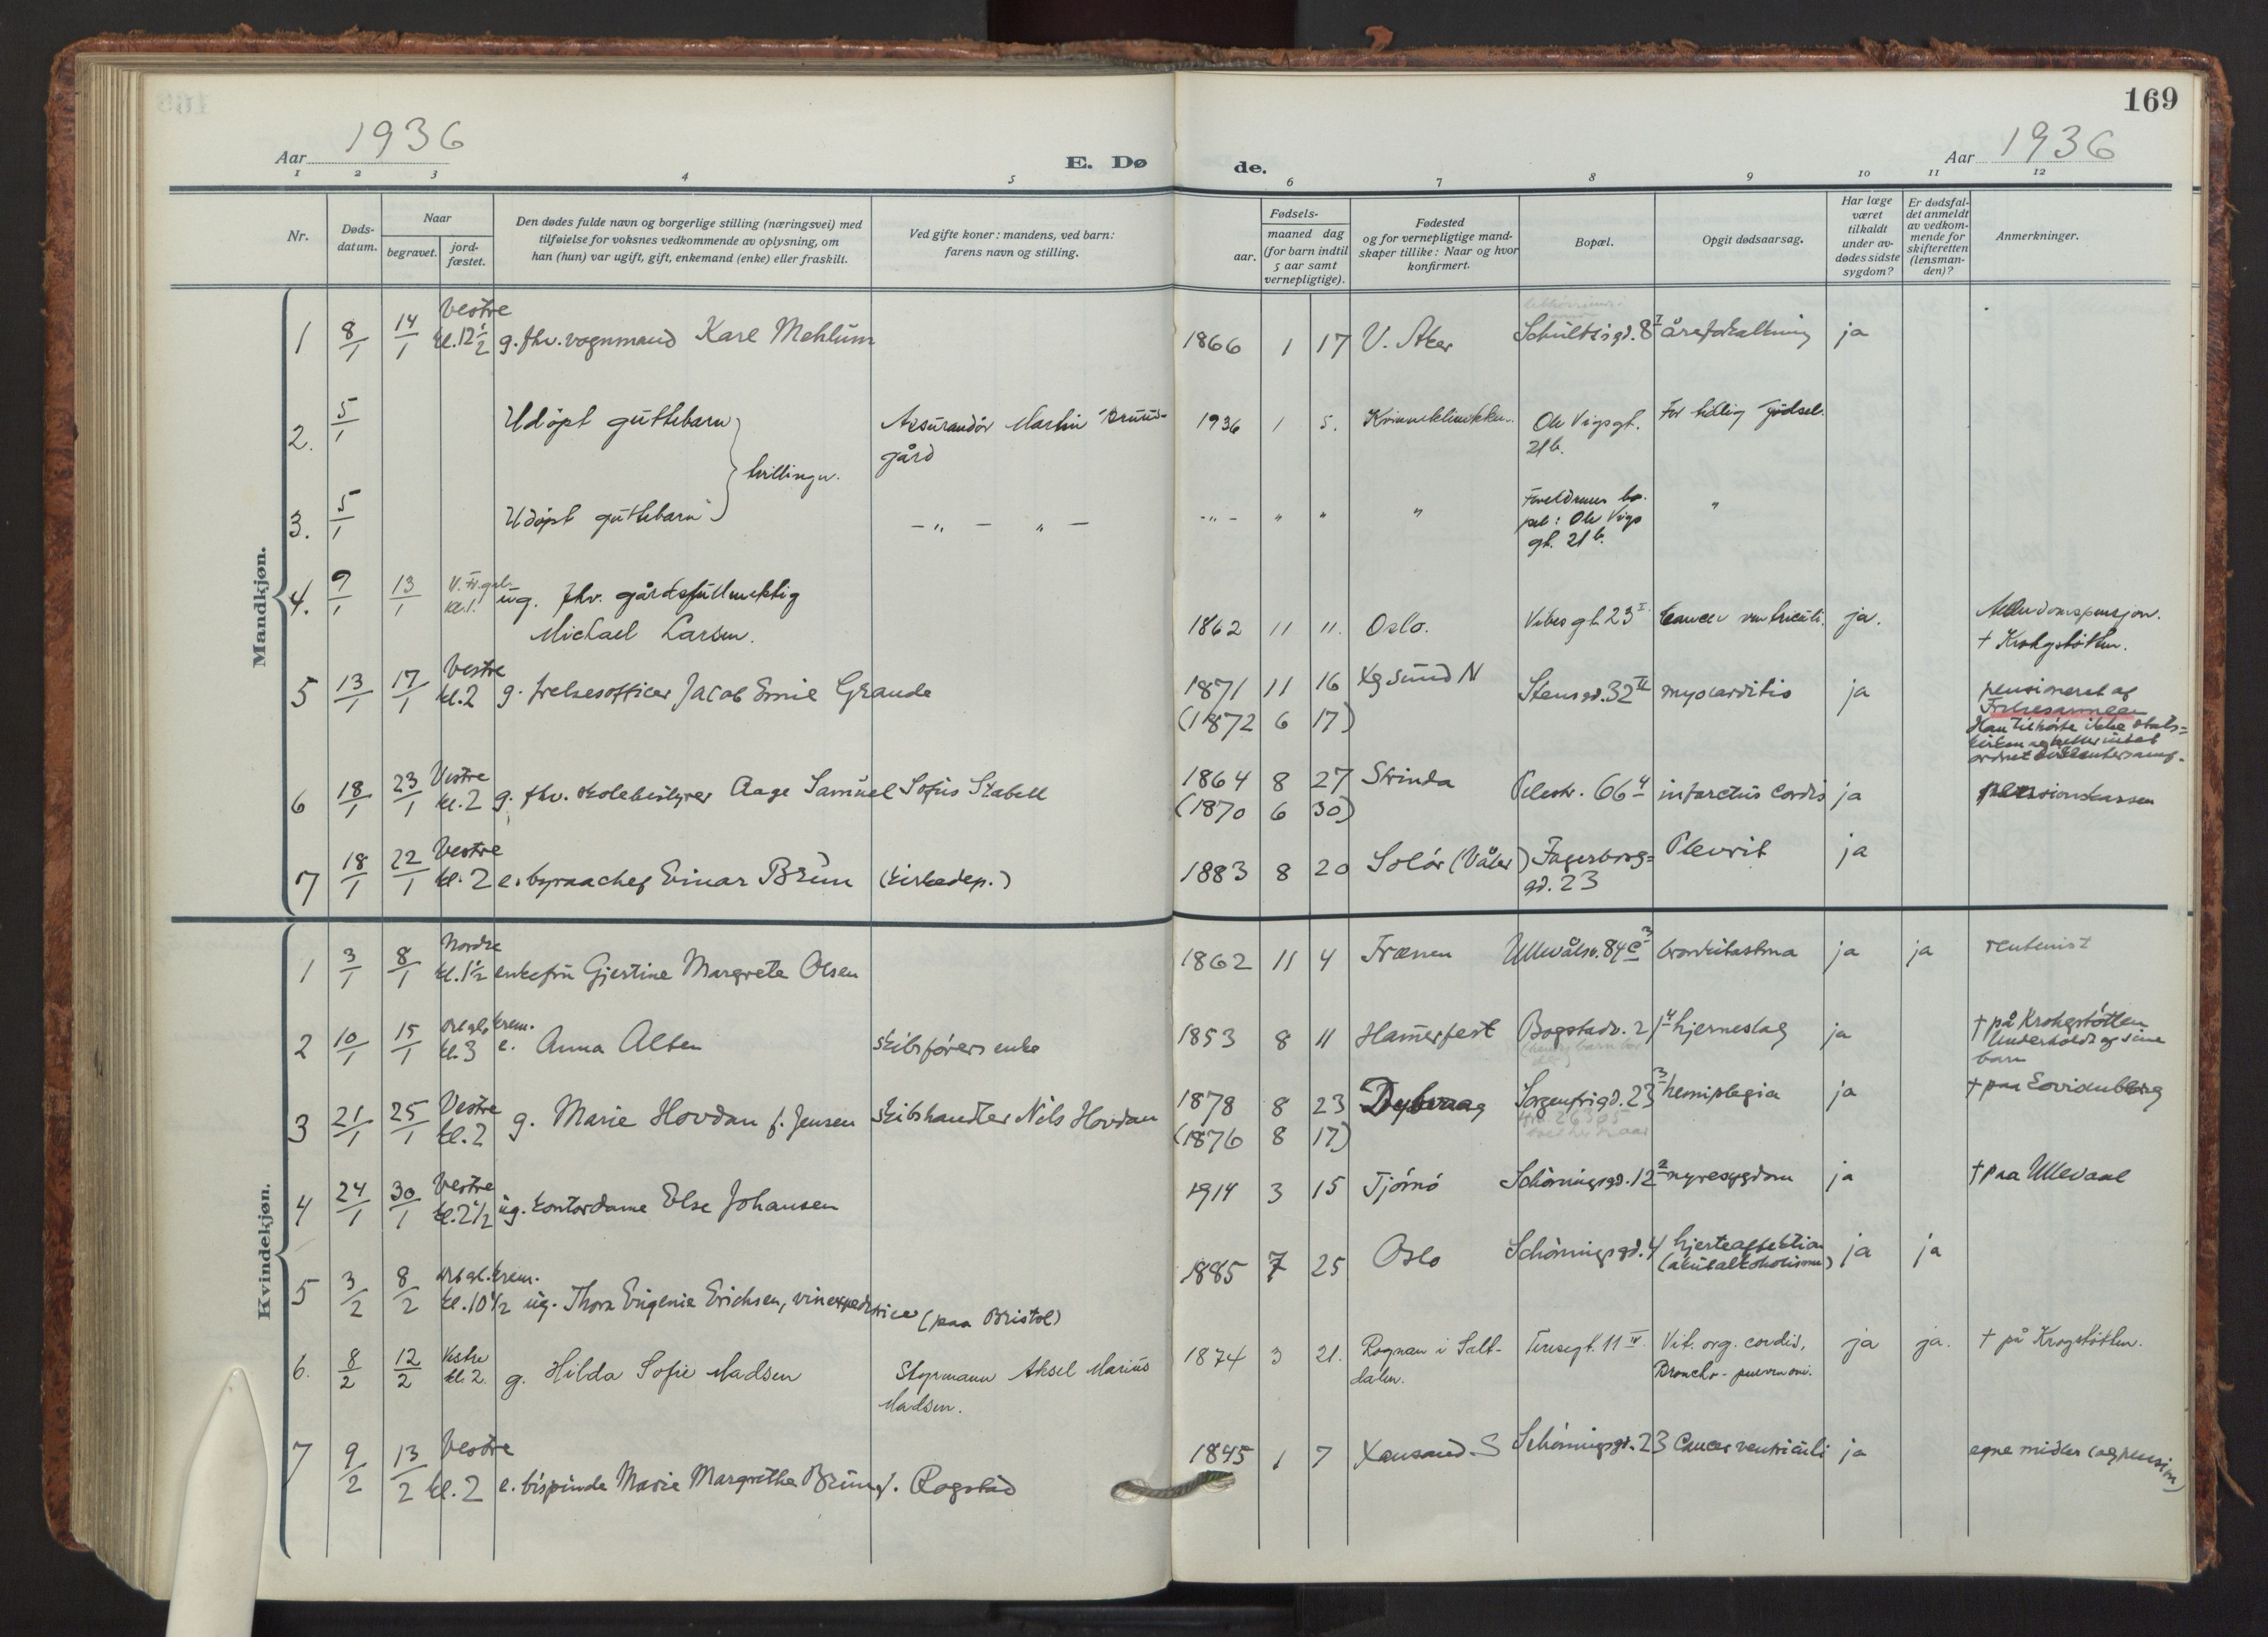 169
Aar 1936
E. Dø
de.
Aar 1936
1 2 3 4 5 6 7 8 9 10 11 12
Nr.
Døds-
datum.
Naar
begravet.
jord-
fæstet.
Den dødes fulde navn og borgerlige stilling (næringsvei) med
tilføielse for voksnes vedkommende av oplysning, om
han (hun) var ugift, gift, enkemand (enke) eller fraskilt.
Ved gifte koner: mandens, ved barn:
farens navn og stilling.
Fødsels-
aar.
maaned dag
(for barn indtil
5 aar samt
vernepligtige).
Fødested
og for vernepligtige mand-
skaper tillike: Naar og hvor
konfirmert.
Bopæl.
Opgit dødsaarsag.
Har læge
været
tilkaldt
under av-
dødes sidste
sygdom?
Er dødsfal-
det anmeldt
av vedkom-
mende for
skifteretten
(lensman-
den)?
Anmerkninger.
Mandkjøn.
Vestre
1 8/1 14/1 kl. 12 1/2 g. fhv. vognmand Karl Mehlum 1866 1 17 V. Aker Schultzsgd. 8 I åreforkalkning ja
2. 5/1 Udøpt guttebarn Assurandør Martin Bruus- 1936 1 5. Kvinneklinikken. Ole Vigsgt. For tidlig fødsel.
gård 21 b.
tvillinger.
3. 5/1 Udøpt guttebarn - " - " - - " - " " " Foreldrenes bo- "
pel: Ole Vigs
gt. 21 b.
4. 9/1 13/1 kl. 1. ug. fhv. gårdsfullmektig
Michael Larsen. 1862 11 11. Oslo. Vibesgt. 23 I Cancer ventriculi. ja. Alderdomspensjon.
† Krohgstøtten.
Vestre
5 13/1 17/1 kl. 2 g. frelsesofficer Jacob Emil Grande 1871 11 16 Xgsund N Stensgd. 32 II myocarditis ja pensioneret af
(1872 6 17) Frelsesarmeen
Han tilhørte ikke stats-
kirken og heller intet
ordnet dissentersamf.
Vestre
6 18/1 23/1 kl. 2 g. fhv. skolebestyrer Aage Samuel Sofus Stabell 1864 8 27 Strinda Pilestr. 66 4 infarctus cordis ja pensionskassen
(1870 6 30)
Vestre
7 18/1 22/1 kl. 2 e. byraachef Einar Brun (kirkedep.) 1883 8 20 Solør (Våler) Fagerborg- Plevrit ja
gd. 23
Kvindekjøn.
Nordre
1 3/1 8/1 kl. 1 1/2 enkefru Gjertine Margrete Olsen 1862 11 4 Frænen Ullevålsv. 84 c 3 bronkitastma ja ja rentenist
krem.
2 10/1 15/1 kl. 3 e. Anna Alten skibsførers enke 1853 8 11 Hamerfest Bogstadv. 21 4 hjerneslag ja † på Krohgstøtten
Underholdt af sine
barn
Vestre
3 21/1 25/1 kl. 2 g. Marie Hovdan f. Jensen skibshandler Nils Hovdan 1878 8 23 Dybvaag Sorgenfrigd. 23 3 hemiplegia ja † paa Lovisenberg
(1876 8 17)
Vestre
4 24/1 30/1 kl. 2 1/2 ug. kontordame Else Johansen 1914 3 15 Tjømø Schøningsgd. 12 2 nyresygdom ja † paa Ullevaal
krem.
5 3/2 8/2 kl. 10 1/2 ug. Thora Eugenie Erichsen, vinexpeditrice (paa Bristol) 1885 7 25 Oslo Schøningsgd. 4 hjerteaffektion ja ja
(akutalkoholisme)
Vestre
6. 8/2 12/2 kl. 2. g. Hilda Sofie Madsen Styrmann Aksel Marius 1874 3 21. Rognan i Salt- Teresegt. 11 IV. Vit. org. cordis, ja ja. † på Krogstøtten.
Madsen. dalen. Broncho-pneumoni.
Vestre
7 9/2 13/2 kl. 2 e. bispinde Marie Margrethe Brun f. Rogstad 1845 1 7 Xansand S Schøningsgd. 23 Cancer ventriculi ja egne midler (og pension)